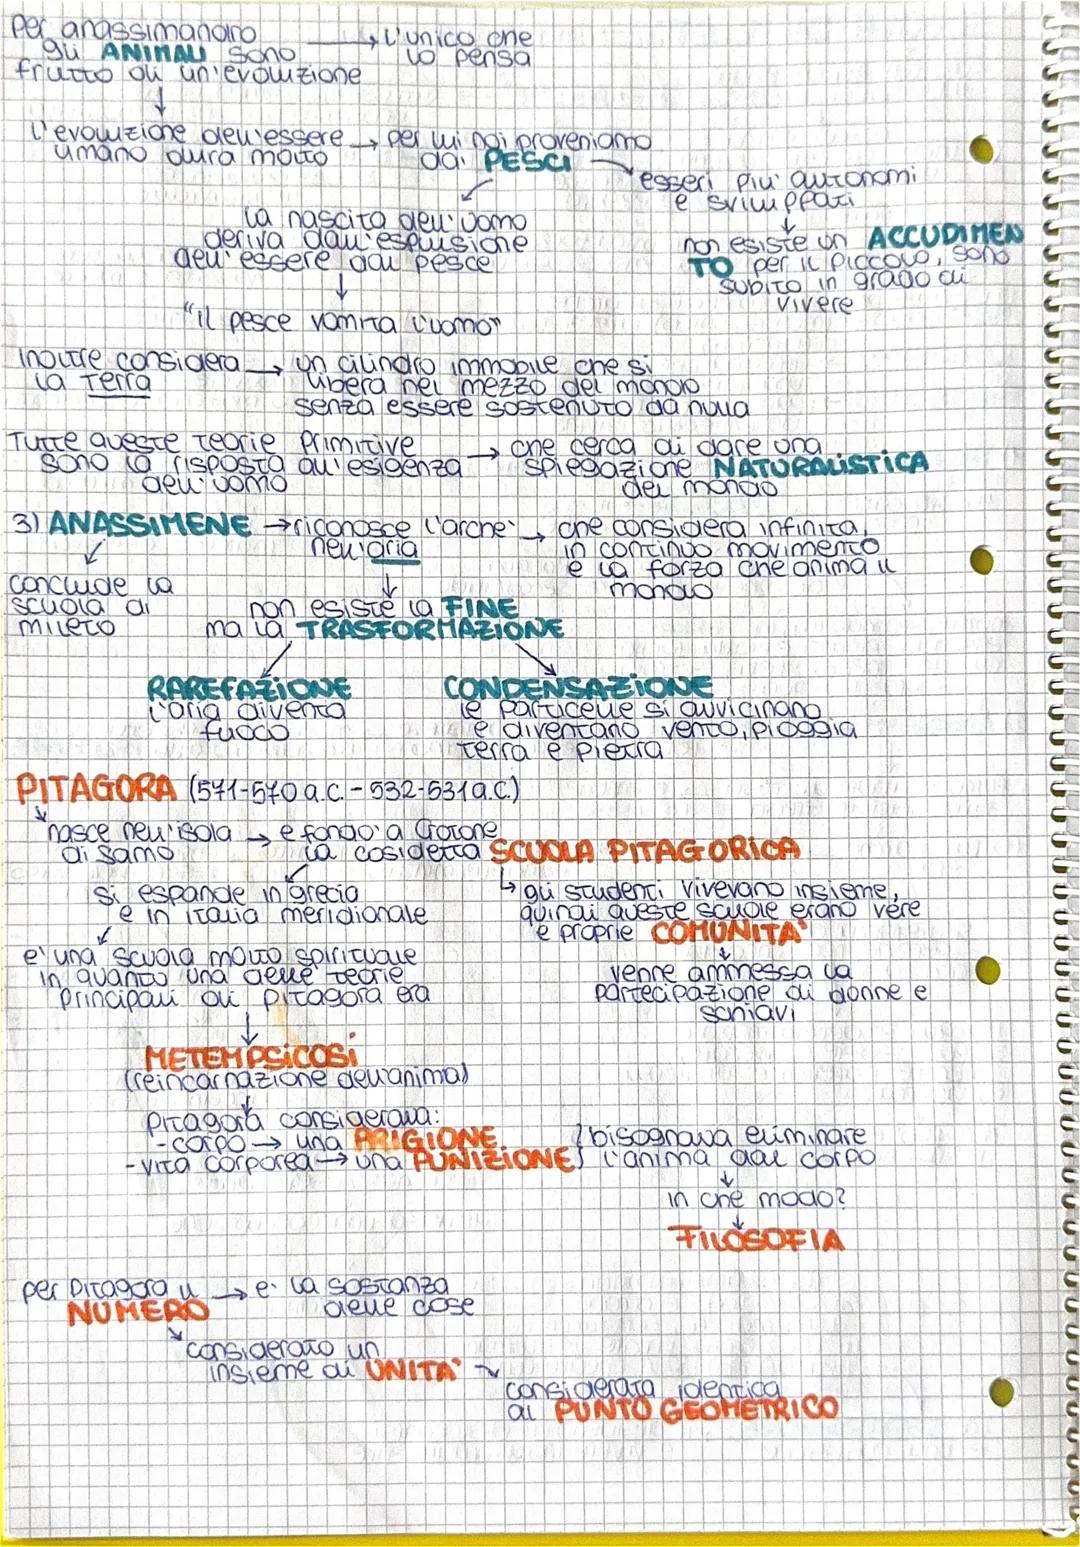 per anassimandro → l'unico che
gli ANIMALI sono lo pensa
frutto di un'evoluzione
↓
l'evoluzione dell'essere → per lui noi proveniamo
umano dura molto dai PESCI
esseri piu' autonomi
e sviluppati
↓
la nascita dell'uomo
deriva dall'espulsione
dell'essere dal pesce
↓
non esiste un ACCUDIMEN
TO per il piccolo, sono
subito in grado di
vivere
"il pesce vomita l'uomo"
inoltre considera → un cilindro immobile che si
la Terra libera nel mezzo del mondo
senza essere sostenuto da nulla
Tutte queste teorie primitive → che cerca di dare una
sono la risposta all'esigenza spiegazione NATURALISTICA
dell'uomo del mondo
3) ANASSIMENE → riconosce l'arche' → che considera infinita,
nell'aria in continuo movimento
e la forza che anima il
mondo
conclude la
scuola di
mileto
↓
non esiste la FINE
ma la TRASFORMAZIONE
RAREFAZIONE
l'aria diventa
fuoco
CONDENSAZIONE
le particelle si avvicinano
e diventano vento, pioggia
terra e pietra
PITAGORA (571-570 a.C. - 532-531 a.C.)
nasce nell'isola → e fondo' a Crotone
di Samo la cosidetta SCUOLA PITAGORICA
si espande in grecia
e in italia meridionale
↳ gli studenti vivevano insieme,
quindi queste scuole erano vere
e proprie COMUNITA'
↓
venne ammessa la
partecipazione di donne e
schiavi
e' una scuola molto spirituale
in quanto una delle teorie
principali di pitagora era
↓
METEMPSICOSI
(reincarnazione dell'anima)
↓
Pitagora considerava:
- corpo → una PRIGIONE } bisognava eliminare
- vita corporea → una PUNIZIONE } l'anima dal corpo
↓
in che modo?
↓
FILOSOFIA
per Pitagora il → e' la sostanza
NUMERO delle cose
considerato un
insieme di UNITA'
considerata identica
al PUNTO GEOMETRICO